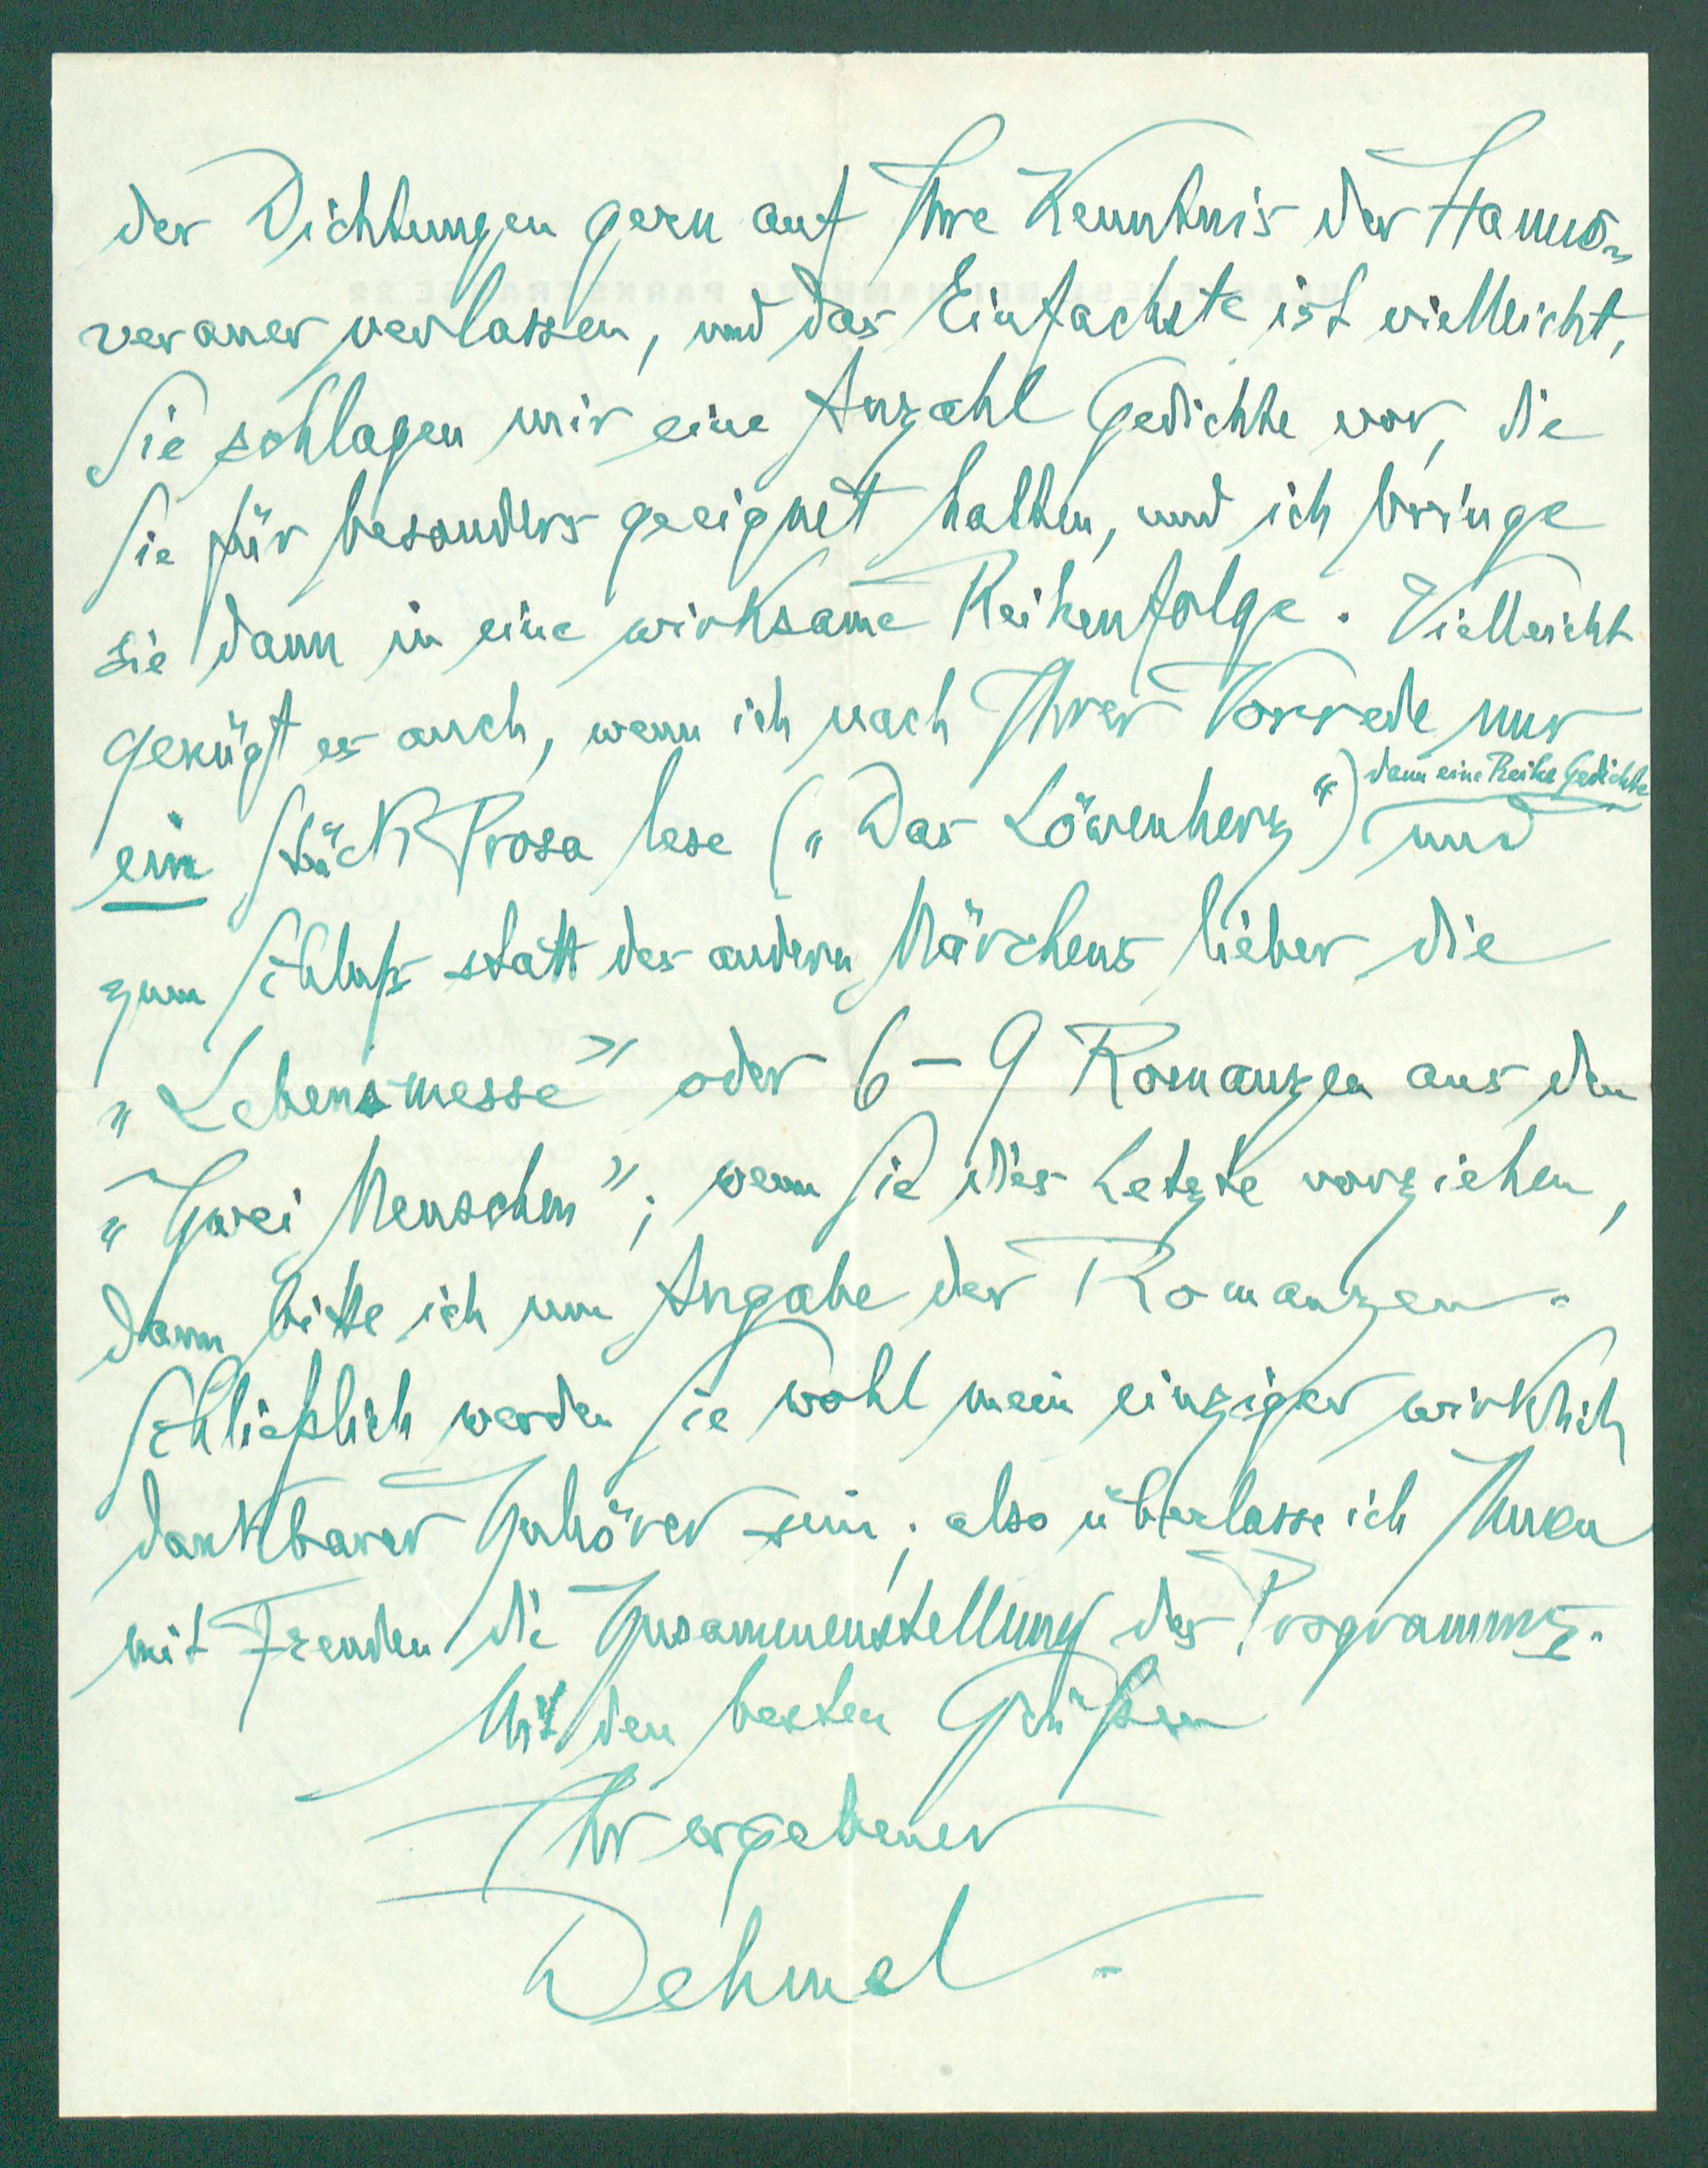 der Dichtungen gern auf Ihre Kenntnis der Hannö-
veraner verlassen, und das Einfachste ist vielleicht,
Sie schlagen mir eine Anzahl Gedichte vor, die
Sie für besonders geeignet halten, und ich bringe
sie dann in eine wirksame Reihenfolge. Vielleicht
genügt es auch, wenn ich nach Ihrer Vorrede nur
dann eine Reihe Gedichte
ein Stück Prosa lese („Das Löwenherz“) und
zum Schluß statt des andern Märchens lieber die
„Lebensmesse” oder 6–9 Romanzen aus den
„Zwei Menschen”; wenn Sie dies Letzte vorziehen,
dann bitte ich um Angabe der Romanzen.
Schließlich werden Sie wohl mein einziger wirklich
dankbarer Zuhörer sein; also überlasse ich Ihnen
mit Freuden die Zusammenstellung des Programms.
Mit den besten Grüßen
Ihr ergebener
Dehmel.